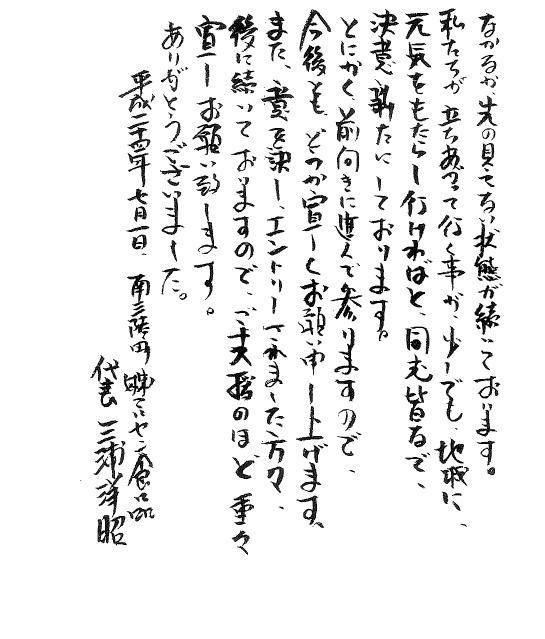 なかなか、先の見えない状態が続いております。
私たちが立ちあがって行く事が、少しでも、地域に、
元気をもたらし行ければと、同志皆なで、
決意新たにしております。
とにかく、前向きに進んで参りますので、
今後とも、どうか宜しくお願い申し上げます。
また、意を決し、エントリーされました方々、
後に続いておりますので、ご支援のほど重々
宜しくお願い致します。
ありがとうございました。
平成二十四年七月一日、南三陸町 ㈱ヤマセン食品
代表 三浦洋昭